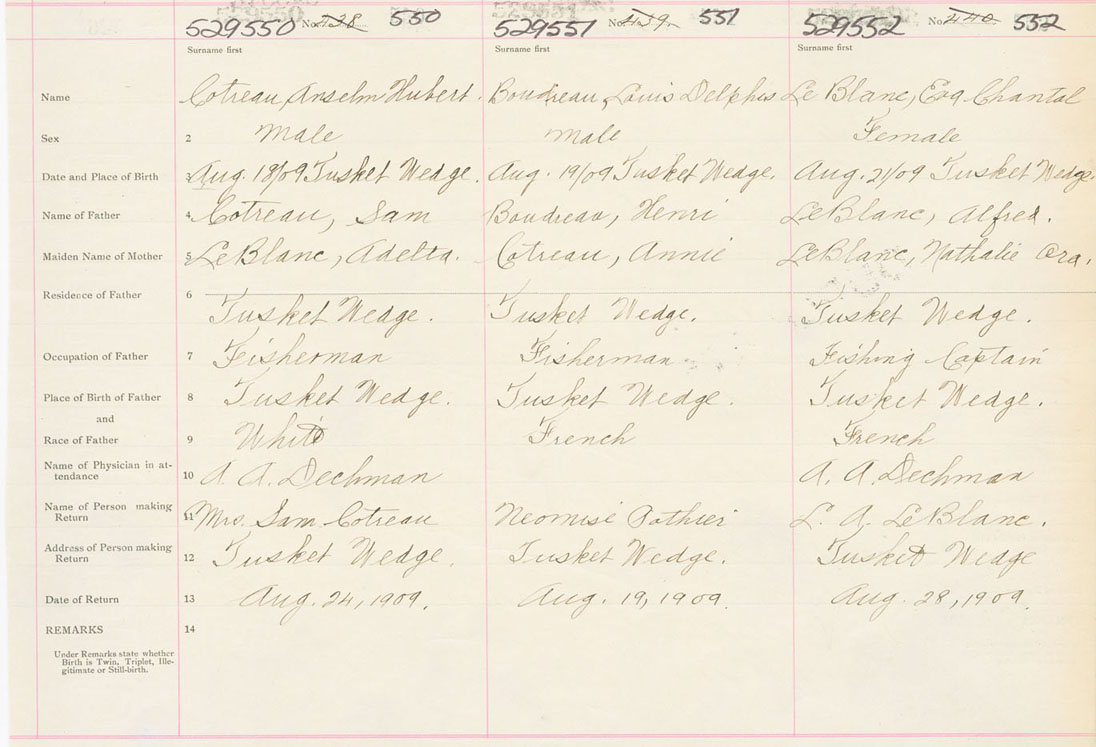 529550 No. 438 550 529551 No. 439. 551 529552 No. 440 552
Surname first Surname first Surname first
Name Cotreau, Anselm Hubert. Boudreau, Louis Delphis Le Blanc, Eva Chantal
Sex 2 Male Male Female
Date and Place of Birth 3 Aug. 18/09 Tusket Wedge. Aug. 19/09 Tusket Wedge. Aug. 21/09 Tusket Wedge.
Name of Father 4 Cotreau, Sam Boudreau, Henri LeBlanc, Alfred.
Maiden Name of Mother 5 LeBlanc, Adelta. Cotreau, Annie LeBlanc, Nathalie Ora.
Residence of Father 6
Tusket Wedge. Tusket Wedge. Tusket Wedge.
Occupation of Father 7 Fisherman Fisherman Fishing Captain
Place of Birth of Father 8 Tusket Wedge. Tusket Wedge. Tusket Wedge.
and
Race of Father 9 White French French
Name of Physician in at-
tendance 10 A. A. Dechman A. A. Dechman
Name of Person making
Return 11 Mrs. Sam Cotreau Neomise Pothier L. A. LeBlanc.
Address of Person making
Return 12 Tusket Wedge. Tusket Wedge. Tusket Wedge
Date of Return 13 Aug. 24, 1909. Aug. 19, 1909. Aug. 28, 1909.
REMARKS 14
Under Remarks state whether
Birth is Twin, Triplet, Ille-
gitimate or Still-birth.